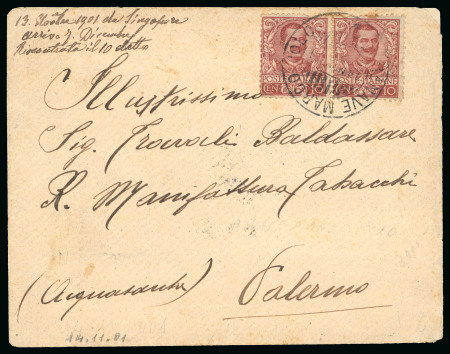 13. 9bre 1901 da Singapore
arrivo 7. Dicembre
Riscontrata il 10 detto
POSTE ITALIANE POSTE ITALIANE
CEN 10 10
NAVE MARCO POLO
Illustrissimo
Sig. Baldassare
R. Manifattura Tabacchi
(Acquasanta)
Palermo
14.11.01